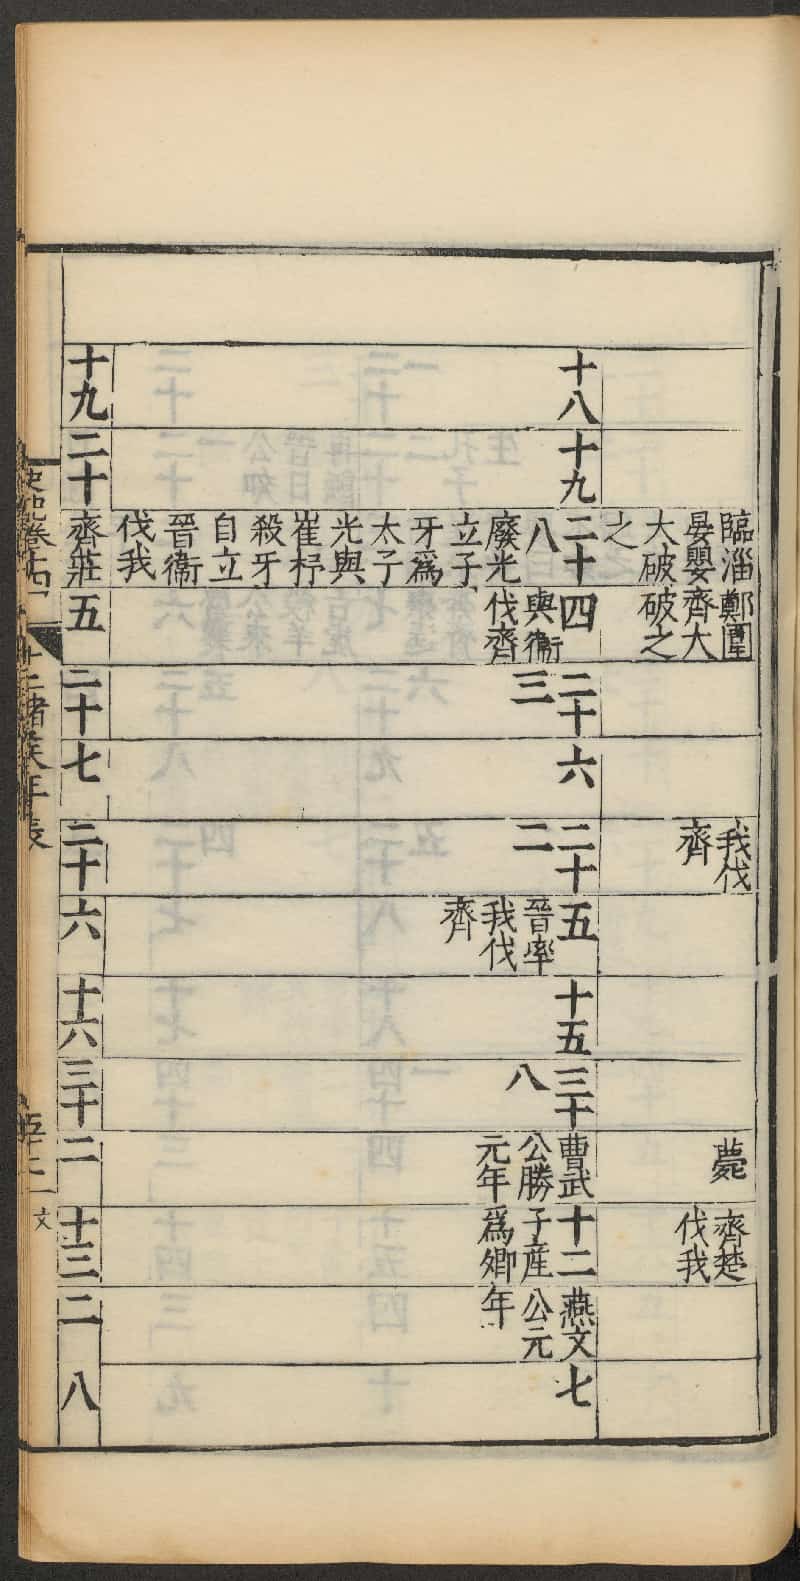 臨淄
晏嬰
大破
之
鄭圍
齊大
破之
我伐
齊
薨
齊楚
伐我
十八
十九
二十
八
廢光
立子
牙爲
太子
光與
崔杼
殺牙
自立
晉衞
伐我
四
與衞
伐齊
二十
三
六
二十
二
五
晉率
我伐
齊
十五
三十
八
曹武
公勝
元年
十二
子產
爲卿
燕文
公元
年
七
十九
二十
齊莊
五
二十
七
二十
六
十六
三十
二
十三
二
八
史記卷十四
十二諸侯年表
文